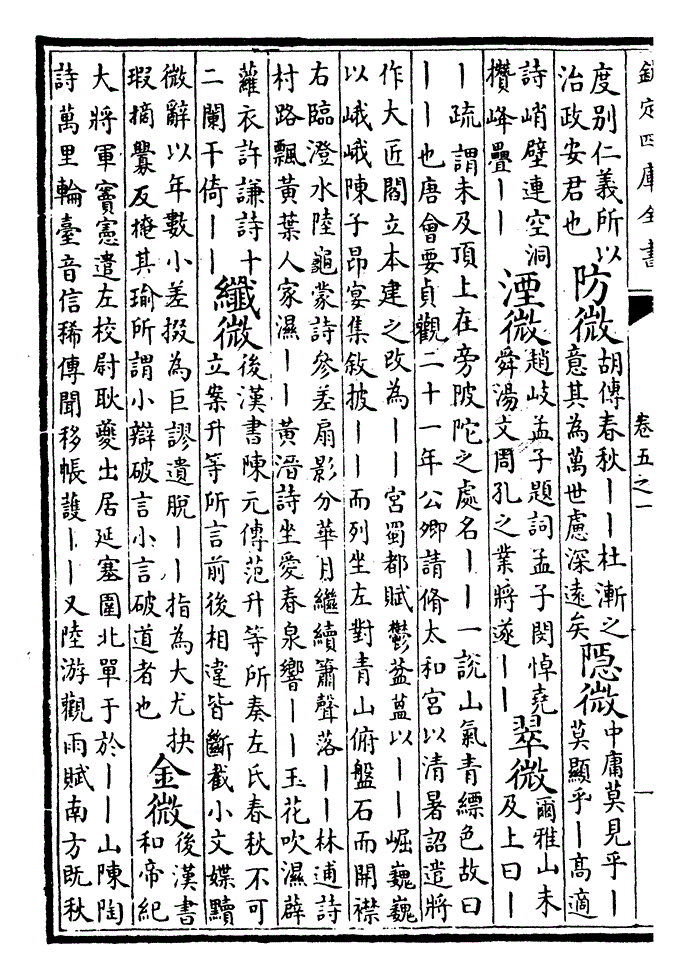 欽定四庫全書 卷五之一 一
度别仁義所以
治政安君也
防微
胡傳春秋丨丨杜漸之
意其為萬世慮深遠矣
隱微
中庸莫見乎丨
莫顯乎丨高適
詩峭壁連空洞
攢峰疊丨丨
湮微
趙岐孟子題詞孟子閔悼堯
舜湯文周孔之業將遂丨丨
翠微
爾雅山未
及上曰丨
丨疏謂未及頂上在旁陂陀之處名丨丨一說山氣青縹色故曰
丨丨也唐會要貞觀二十一年公卿請脩太和宮以清暑詔遣將
作大匠閻立本建之改為丨丨宮蜀都賦鬱葐蒀以丨丨崛巍巍
以峨峨陳子昂宴集敘披丨丨而列坐左對青山俯盤石而開襟
右臨澄水陸龜蒙詩參差扇影分華月繼續簫聲落丨丨林逋詩
村路飄黃葉人家濕丨丨黃溍詩坐愛春泉響丨丨玉花吹濕薜
蘿衣許謙詩十
二闌干倚丨丨
纖微
後漢書陳元傳范升等所奏左氏春秋不可
立案升等所言前後相違皆斷截小文媟黷
微辭以年數小差掇為巨謬遺脫丨丨指為大尤抉
瑕摘釁反掩其瑜所謂小辯破言小言破道者也
金微
後漢書
和帝紀
大將軍竇憲遣左校尉耿夔出居延塞圍北單于於丨丨山陳陶
詩萬里輪臺音信稀傳聞移帳護丨丨又陸游觀雨賦南方既秋